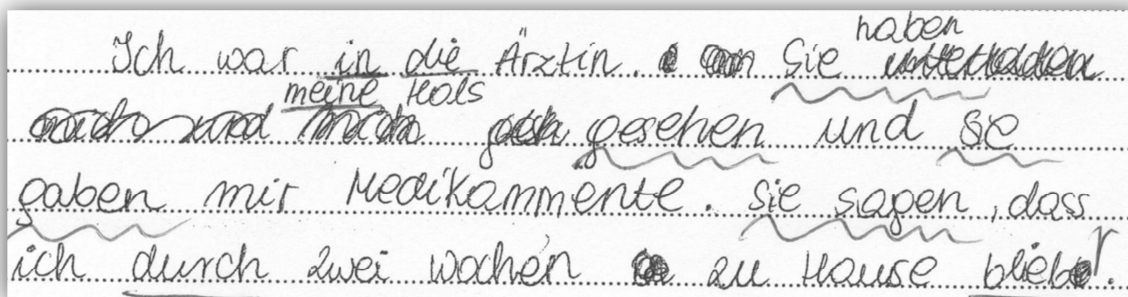 Ich war in die Ärztin. Sie haben
meine Hals gesehen und se
gaben mir Medikammente. Sie sagen, dass
ich durch zwei wochen zu Hause bliebt.